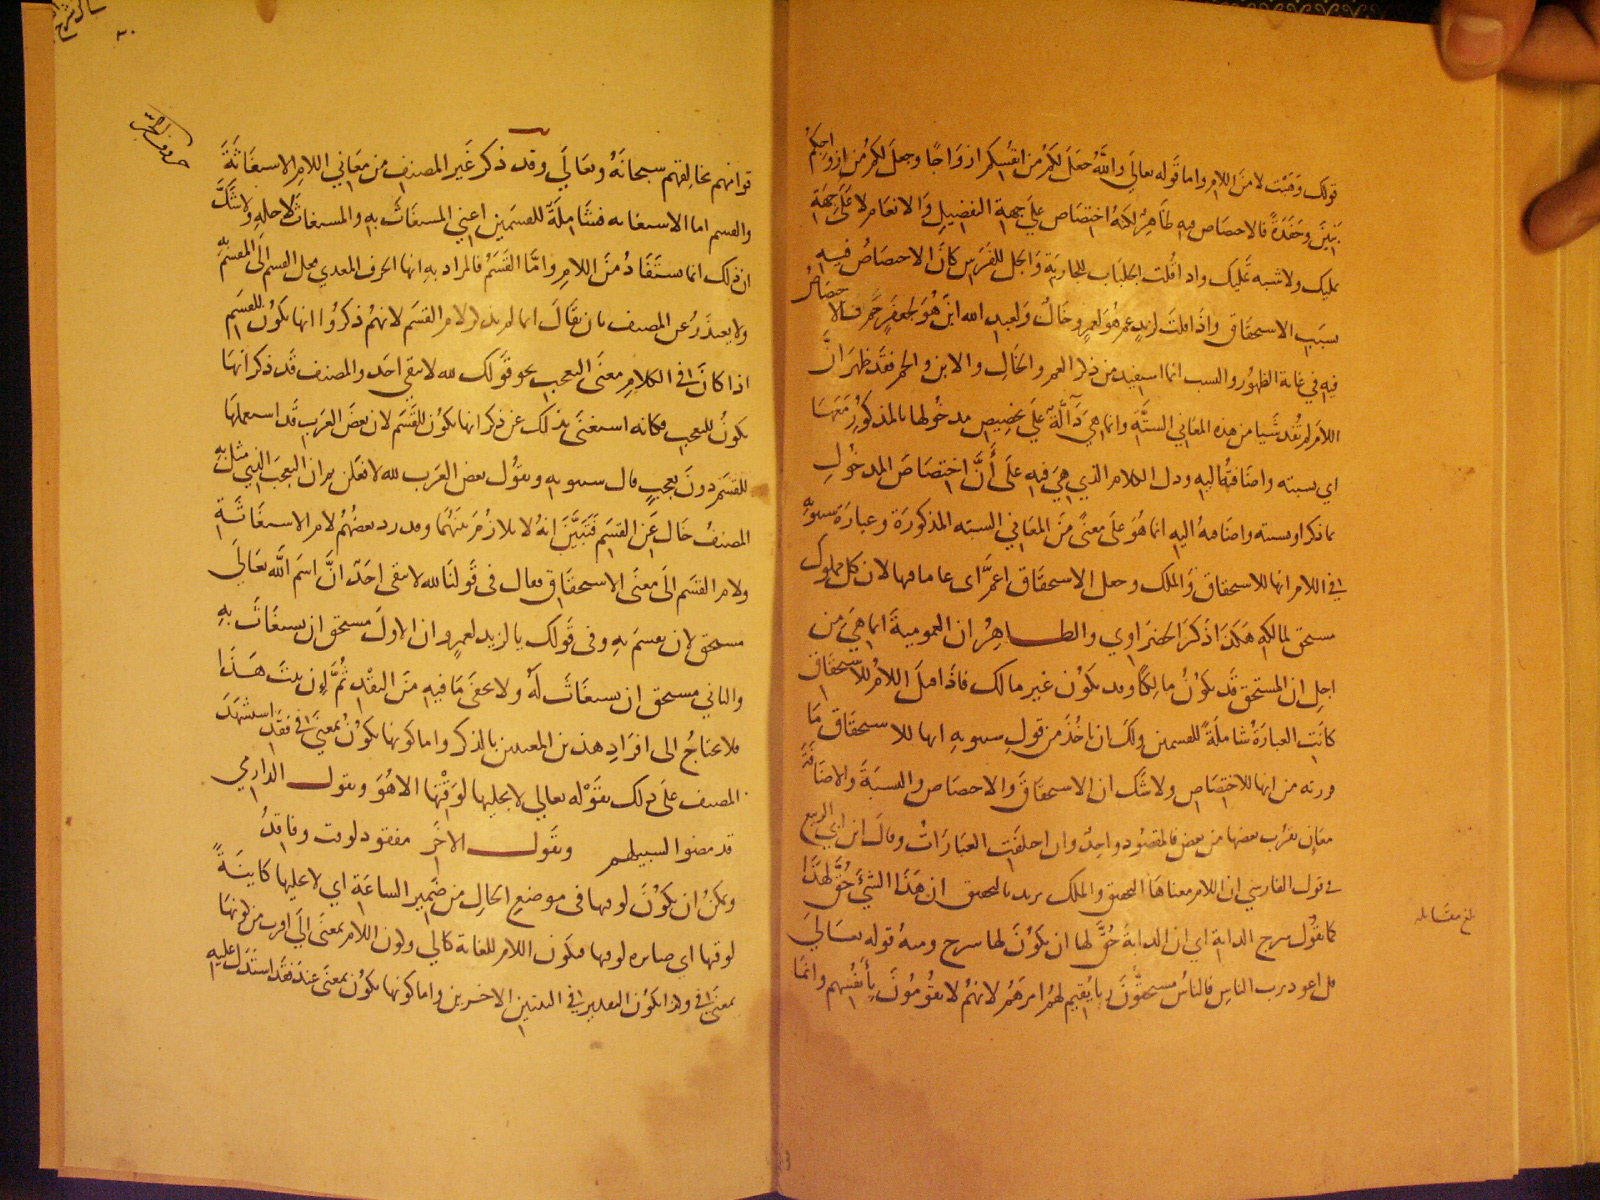 قولك وهبت لا من اللام واما قوله تعالى والله جعل لكم من انفسكم ازواجا وجعل لكم من ازواجكم
بنين وحفدة فالاختصاص فيه ظاهر لكنه اختصاص على جهة التفضيل والانعام لا على جهة
تمليك ولا شبه تمليك واذا قلت الجلباب للجارية والجل للفرس كان الاختصاص فيه
بسبب الاستحقاق واذا قلت لزيد عم هو لعمرو خال ولعبد الله ابن هو لجعفر حم فالاختصاص
فيه في غاية الظهور والسبب انما استفيد من ذكر العم والخال والابن والحم فقد ظهر ان
اللام لم تفد شيا من هذه المعاني الستة وانما هي دالة على تخصيص مدخولها بالمذكور معها
اي نسبته واضافته اليه ودل الكلام الذي هي فيه على أن اختصاص المدخول
بما ذكر او نسبته واضافته اليه انما هو على معنى من المعاني الستة المذكورة وعبارة سيبويه
في اللام انها للاستحقاق والملك وجعل الاستحقاق اعم اى عاما فيها لان كل مملوك
مستحق لمالكه هكذا ذكر الخضراوي والظاهر ان العمومية انما هي من
اجل ان المستحق قد يكون مالكا وقد يكون غير مالك فاذا قيل اللام للاستحقاق
كانت العبارة شاملة للقسمين ولك ان تاخذ من قول سيبويه انها للاستحقاق ما
ورته من انها للاختصاص ولا شك ان الاستحقاق والاختصاص والنسبة والاضافة
معان يقرب بعضها من بعض فالمقصود واحد وان اختلفت العبارات وقال ابن ابي الربيع
في قول الفارسي ان اللام معناها التحقيق والملك يريد بالتحقيق ان هذا الشيء حق لهذا
كما تقول سرج الدابة اي ان الدابة حق لها ان يكون لها سرج ومنه قوله تعالى
قل اعوذ برب الناس فالناس مستحقون ربا يقيم لهم امرهم لانهم لا يقومون بأنفسهم وانما
بلغ مقابله
٣٠
حروف الجر
قوامهم بخالقهم سبحانه وتعالي وقد ذكر غير المصنف من معاني اللام الاستغاثة
والقسم اما الاستغاثة فشاملة للقسمين اعني المستغاث به والمستغاث لاجله ولا شك
ان ذلك انما يستفاد من اللام واما القسم فالمراد به انها الحرف المعدي فعل القسم الى المقسم به
ولا يعتذر عن المصنف بان يقال انما لم يذكر لام القسم لانهم ذكروا انها تكون للقسم
اذا كان في الكلام معنى التعجب نحو قولك لله لا يبقى احد والمصنف قد ذكر انها
تكون للتعجب فكانه استغنى بذلك عن ذكر انها تكون للقسم لان بعض العرب قد استعملها
للقسم دون تعجب قال سيبويه وتقول بعض العرب لله لافعلن ثم ان التعجب الذي مثل به
المصنف خال عن القسم فتبين انه لا تلازم بينهما وقد رد بعضهم لام الاستغاثة
ولام القسم الى معنى الاستحقاق فقال فى قولنا لله لا يبقى احد ان اسم الله تعالى
مستحق لان يقسم به وفى قولك يا لزيد لعمرو ان الاول مستحق ان يستغاث به
والثاني مستحق ان يستغاث له ولا يخفى ما فيه من النقد ثم إن يثبت هذا
فلا يحتاج الى افراد هذين المعنيين بالذكر واما كونها تكون بمعنى في فقد استشهد
المصنف على ذلك بقوله تعالى لا يجليها لوقتها الا هو وبقول الدارمي
قد مضوا لسبيلهم وبقول الاخر مفقود لوقت وفاقد
ويمكن ان يكون لوقتها فى موضع الحال من ضمير الساعة اي لا يجليها كاينة
لوقتها اي صايرة لوقتها فتكون اللام للغاية كالى وكون اللام بمعنى الى اقرب من كونها
بمعنى في وكذا يكون التقدير في البيتين الاخرين واما كونها تكون بمعنى عند فقد استدل عليه